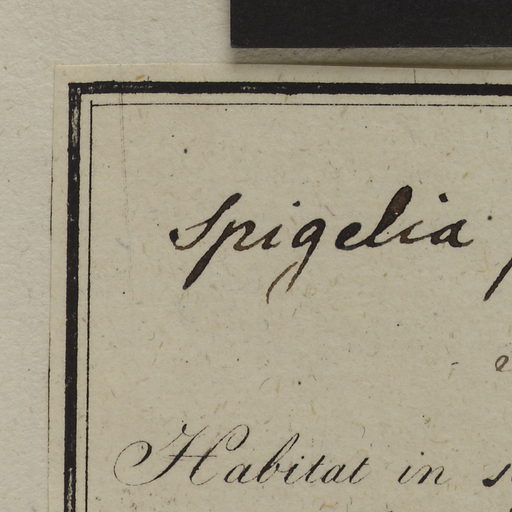 Spigelia
Habitat in